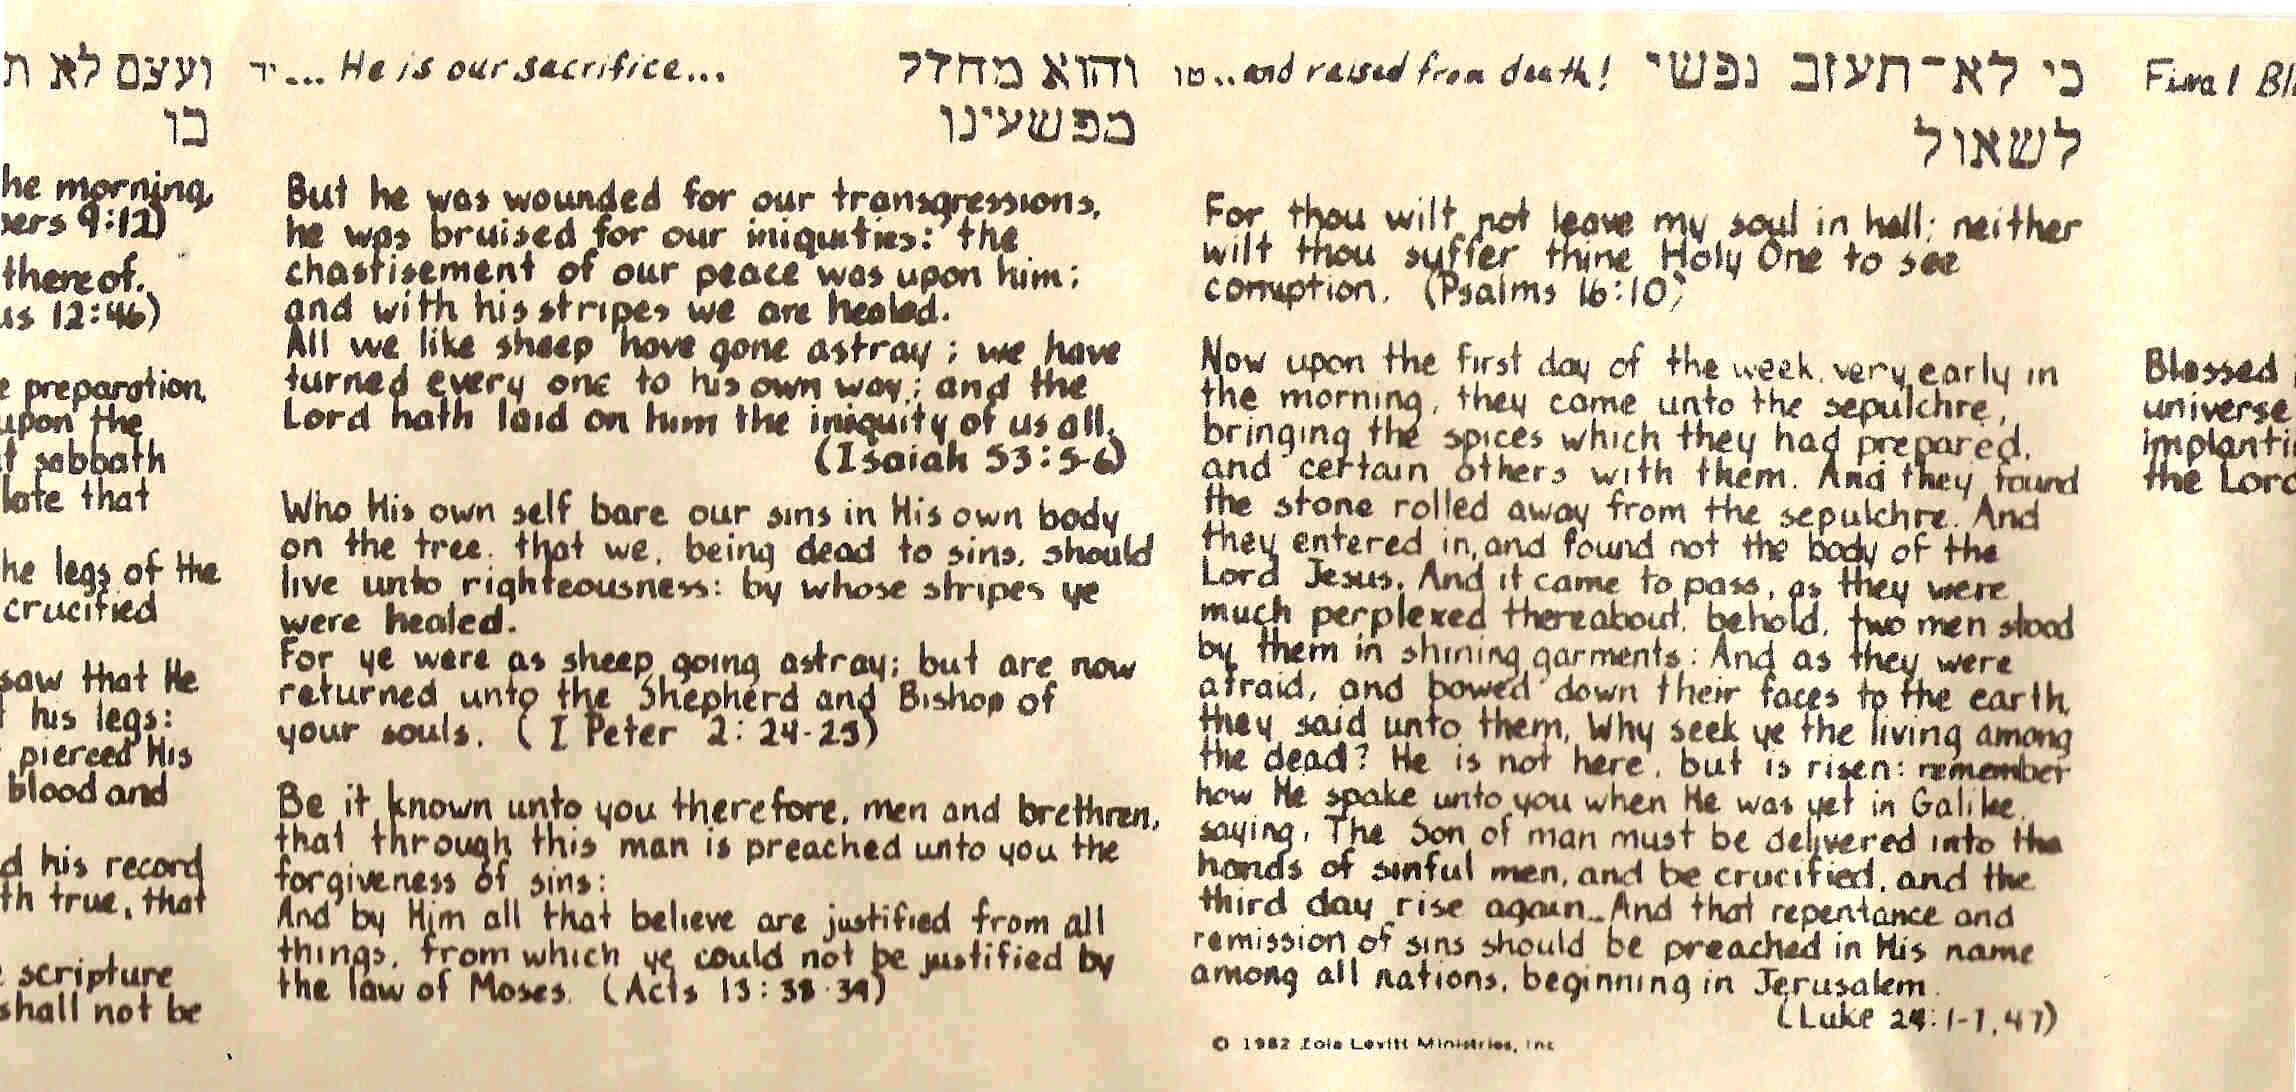 ועצם לא ת
בו
he morning,
bers 9:12)
thereof.
us 12:46)
e preparation,
upon the
t sabbath
late that
he legs of the
crucified
saw that He
t his legs:
pierced His
blood and
d his record
th true, that
e scripture
shall not be
יד ... He is our sacrifice... והוא מחלל
מפשעינו
But he was wounded for our transgressions,
he was bruised for our iniquities: the
chastisement of our peace was upon him;
and with his stripes we are healed.
All we like sheep have gone astray; we have
turned every one to his own way; and the
Lord hath laid on him the iniquity of us all.
(Isaiah 53:5-6)
Who His own self bare our sins in His own body
on the tree, that we, being dead to sins, should
live unto righteousness: by whose stripes ye
were healed.
For ye were as sheep going astray; but are now
returned unto the Shepherd and Bishop of
your souls. (I Peter 2:24-25)
Be it known unto you therefore, men and brethren,
that through this man is preached unto you the
forgiveness of sins:
And by Him all that believe are justified from all
things, from which ye could not be justified by
the law of Moses. (Acts 13:38-39)
טו ...and raised from death! כי לא־תעזב נפשי
לשאול
For thou wilt not leave my soul in hell; neither
wilt thou suffer thine Holy One to see
corruption. (Psalms 16:10)
Now upon the first day of the week, very early in
the morning, they came unto the sepulchre,
bringing the spices which they had prepared,
and certain others with them. And they found
the stone rolled away from the sepulchre. And
they entered in, and found not the body of the
Lord Jesus. And it came to pass, as they were
much perplexed thereabout, behold, two men stood
by them in shining garments: And as they were
afraid, and bowed down their faces to the earth,
they said unto them, Why seek ye the living among
the dead? He is not here, but is risen: remember
how He spake unto you when He was yet in Galilee,
saying, The Son of man must be delivered into the
hands of sinful men, and be crucified, and the
third day rise again... And that repentance and
remission of sins should be preached in His name
among all nations, beginning in Jerusalem.
(Luke 24:1-7,47)
© 1982 Zola Levitt Ministries, Inc
Final Ble
Blessed
universe
implanti
the Lord